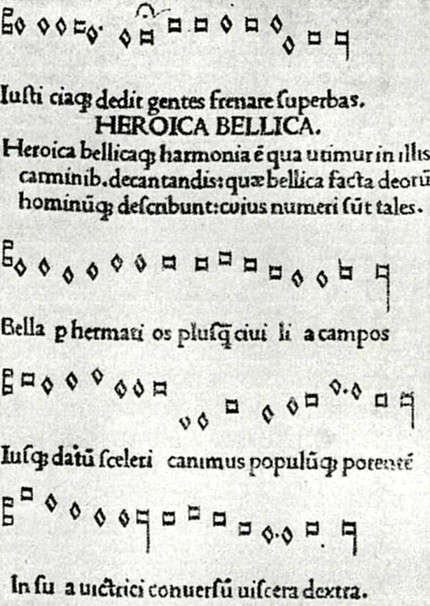 Iuſti ciaq; dedit gentes frenare ſuperbas.
HEROICA BELLICA.
Heroica bellicaq; harmonia ē qua utimur in illis
carminib. decantandis: quæ bellica facta deorū
hominūq; deſcribunt: cuius numeri ſūt tales.
Bella p hermati os pluſq̄ ciui li a campos
Iuſq; datū ſceleri canimus populūq; potentē
In ſu a uictrici conuerſū uiſcera dextra.